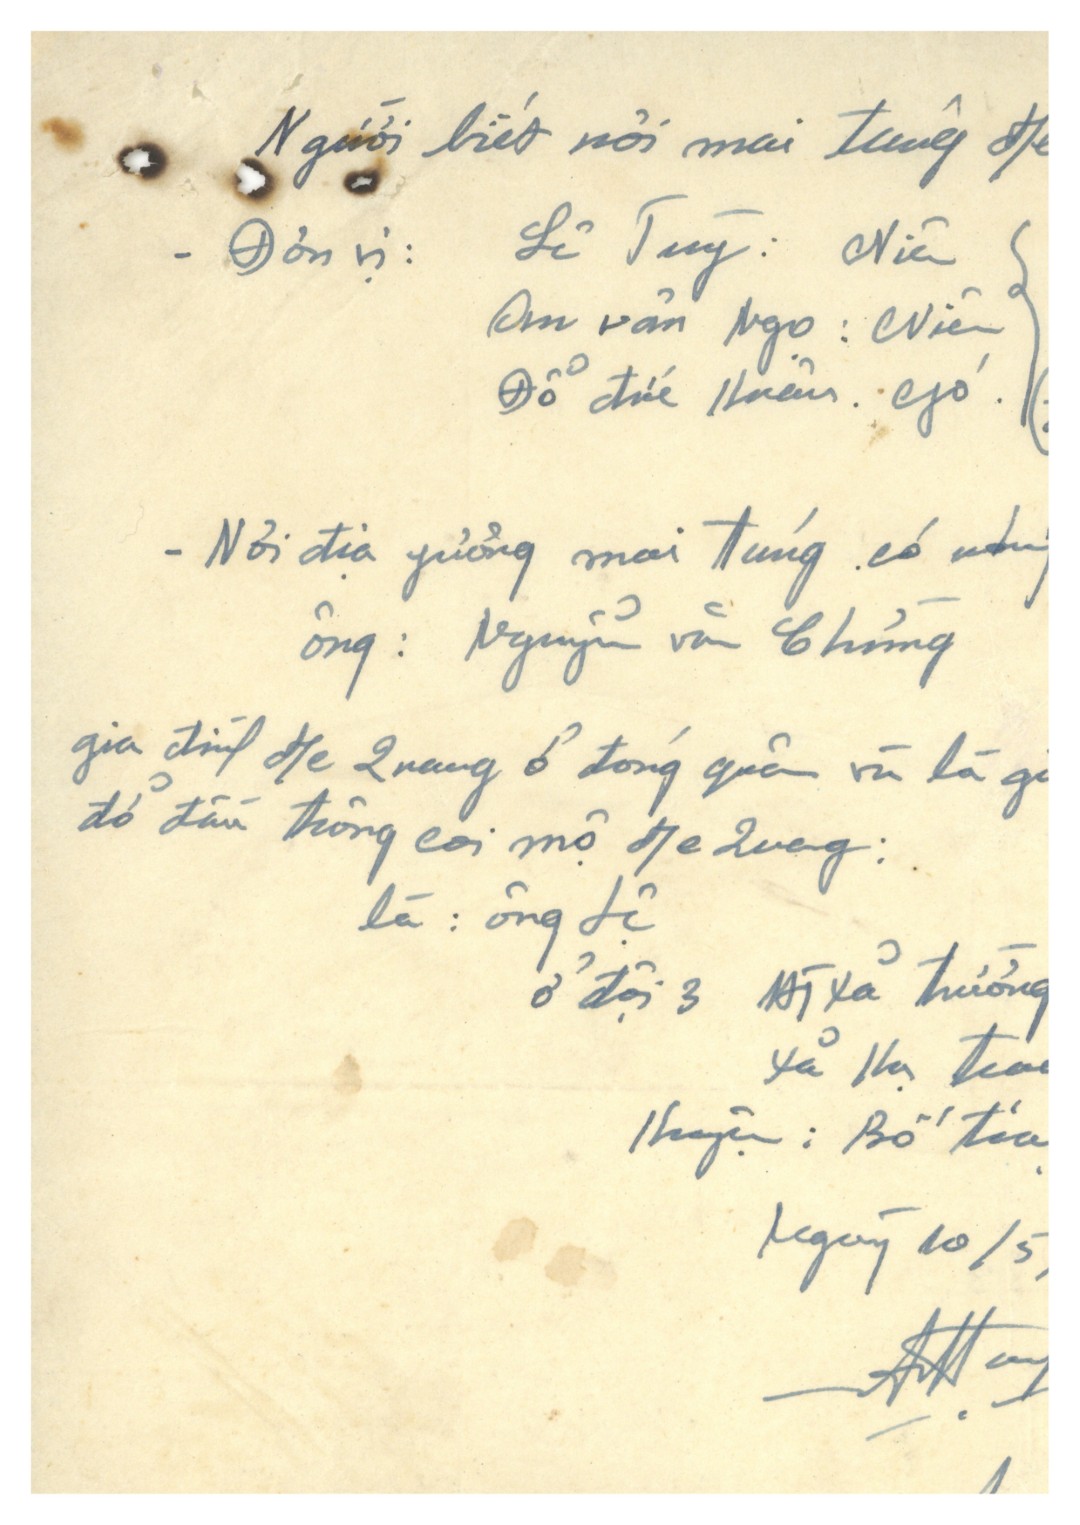 Người biết nơi mai táng đ/c
- Đơn vị: Lê Tuy: Niên
Om văn Ngọ: Niên
Đổ đức Huân. Gyó.
- Nơi địa phương mai táng có
ông: Nguyễn văn Chưởng
gia đình đ/c Quang ở đong quân và là
đở đầu trông coi mộ đ/c Quang:
là: ông Lệ
ở đội 3 HTXả trường
xả Hạ
Huyện: Bố
Ngày 10/5/